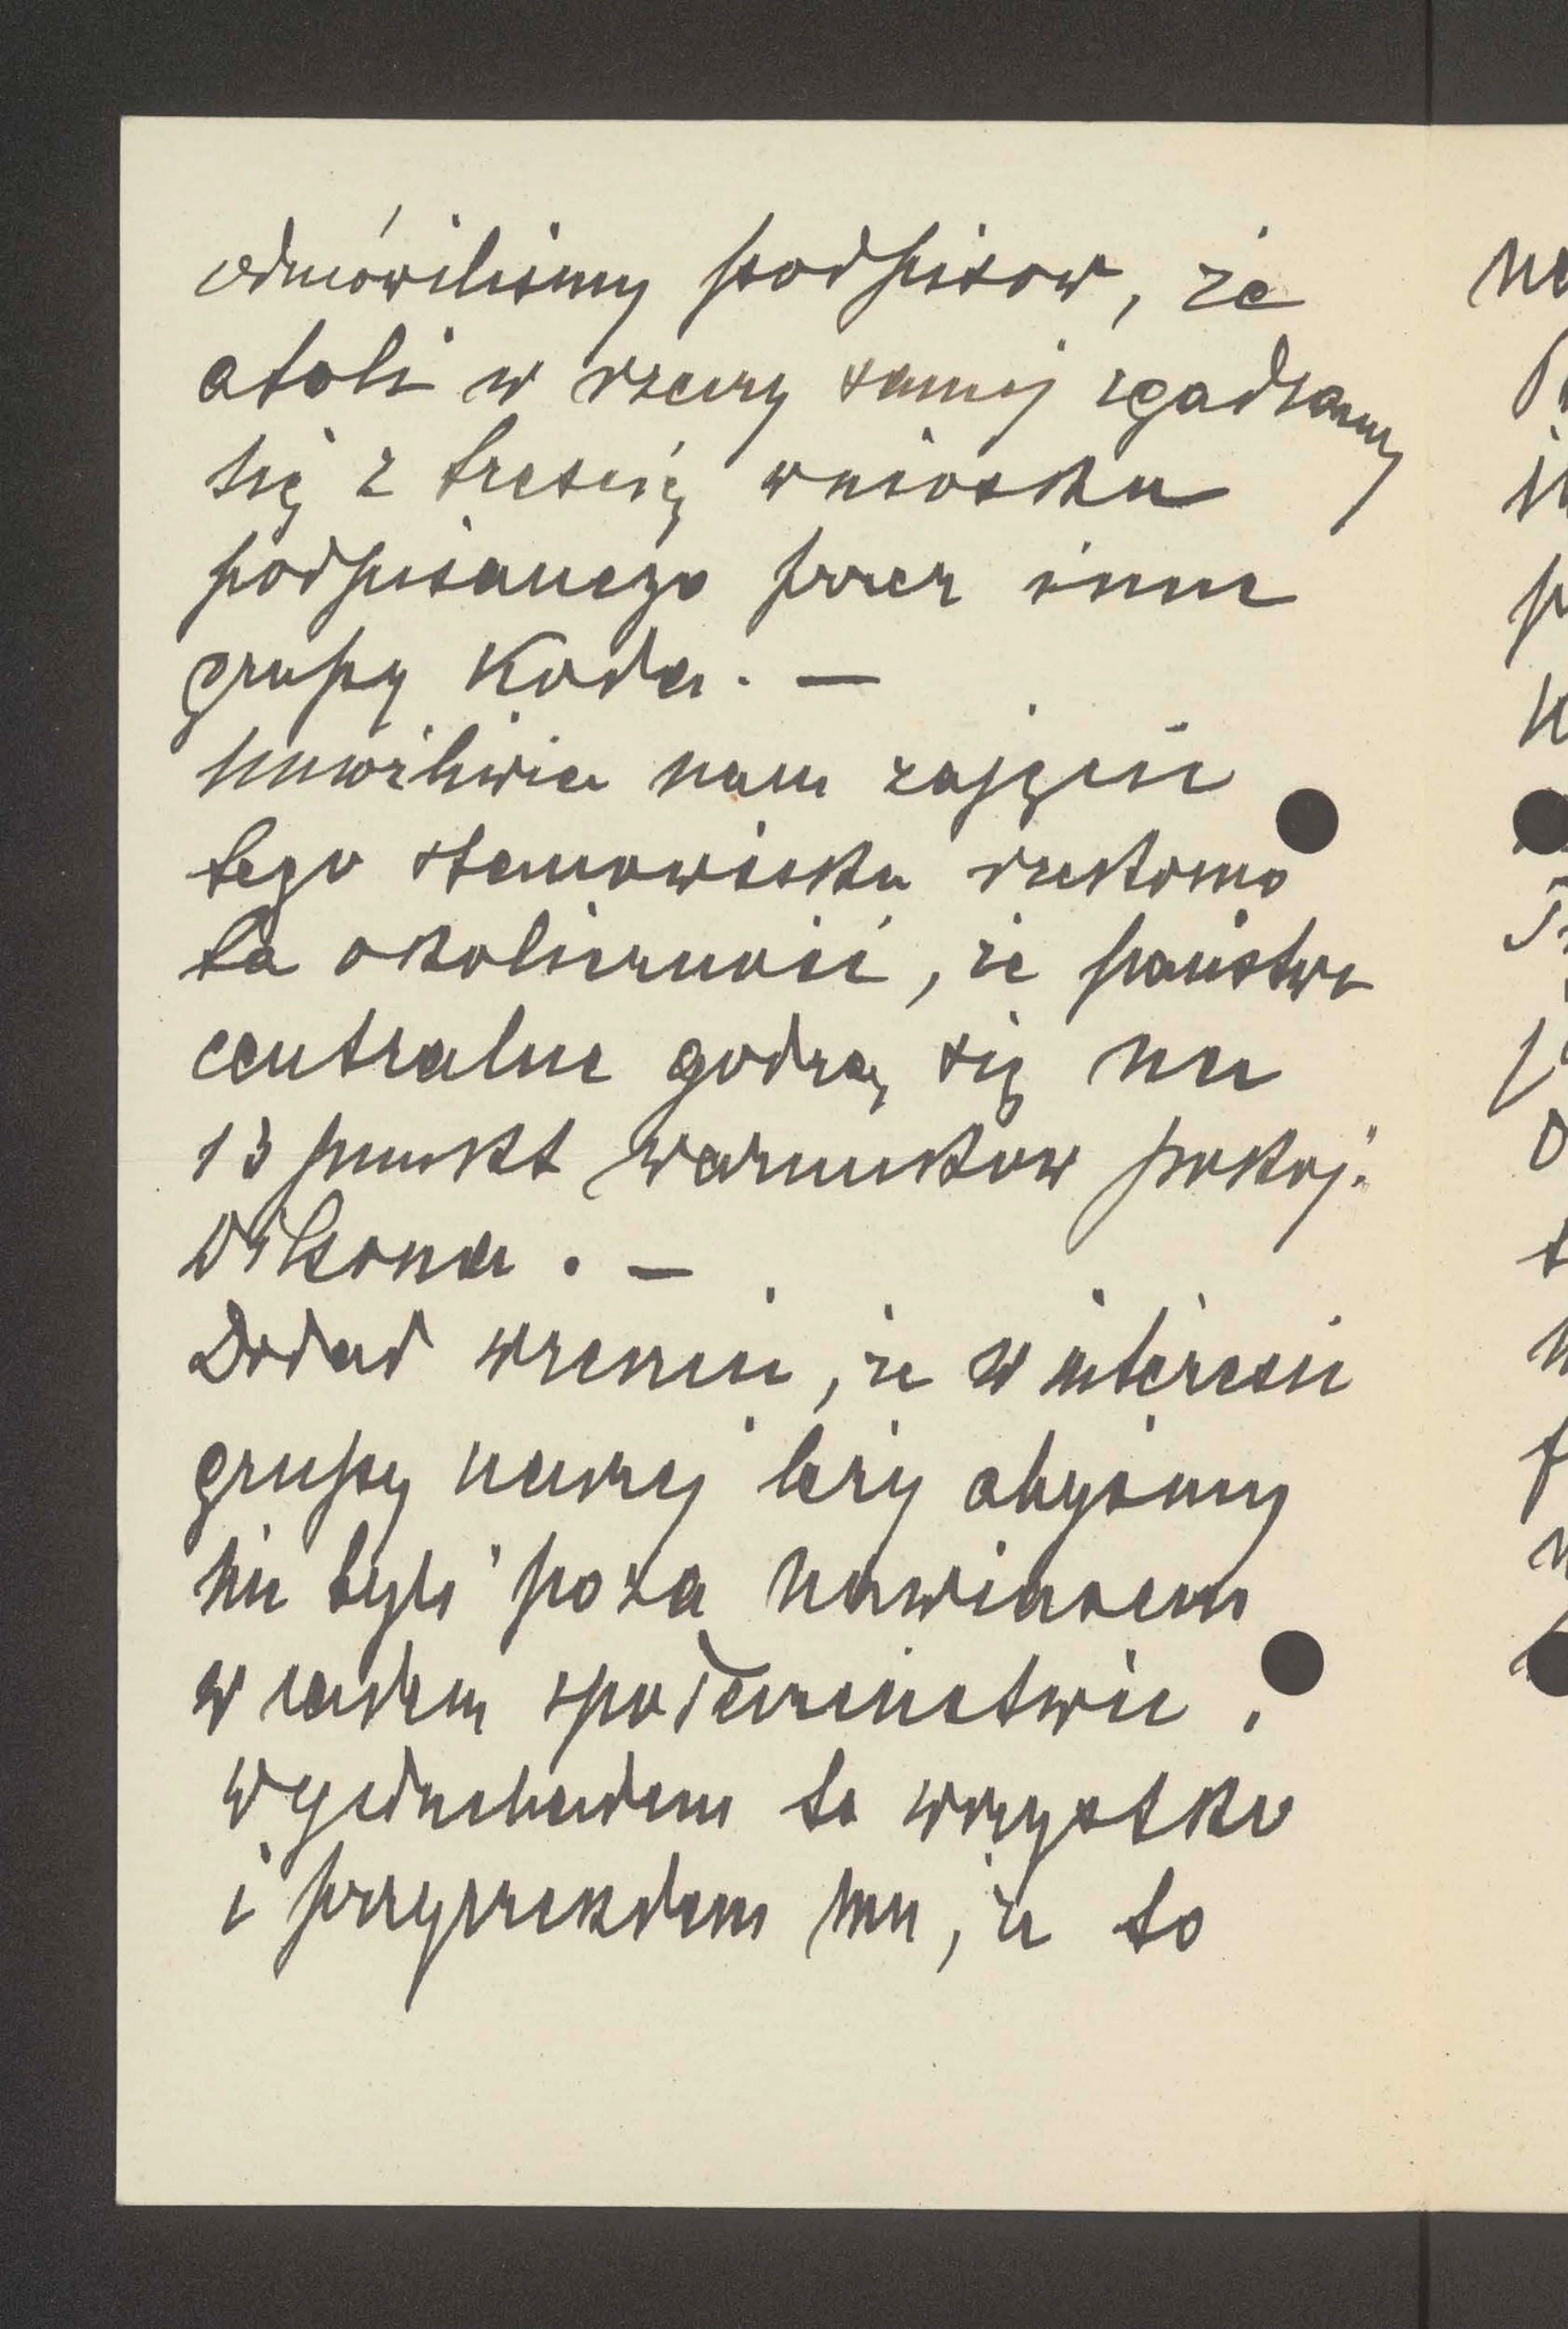 odmówiliśmy podpisów, że
atoli w rzeczy samej zgadzamy
się z treścią wniosku
podpisanego przez inne
grupy Koła. —
umożliwia nam zajęcie
tego stanowiska rzekomo
ta okoliczność, że państwa
centralne godzą się na
13 punkt warunków pokoj.
Wilsona. —
Dodał wreszcie, że w interesie
grupy naszej leży abyśmy
nie byli poza nawiasem
w całem społeczeństwie.
Wysłuchałem to wszystko
i przyrzekłem mu, że to